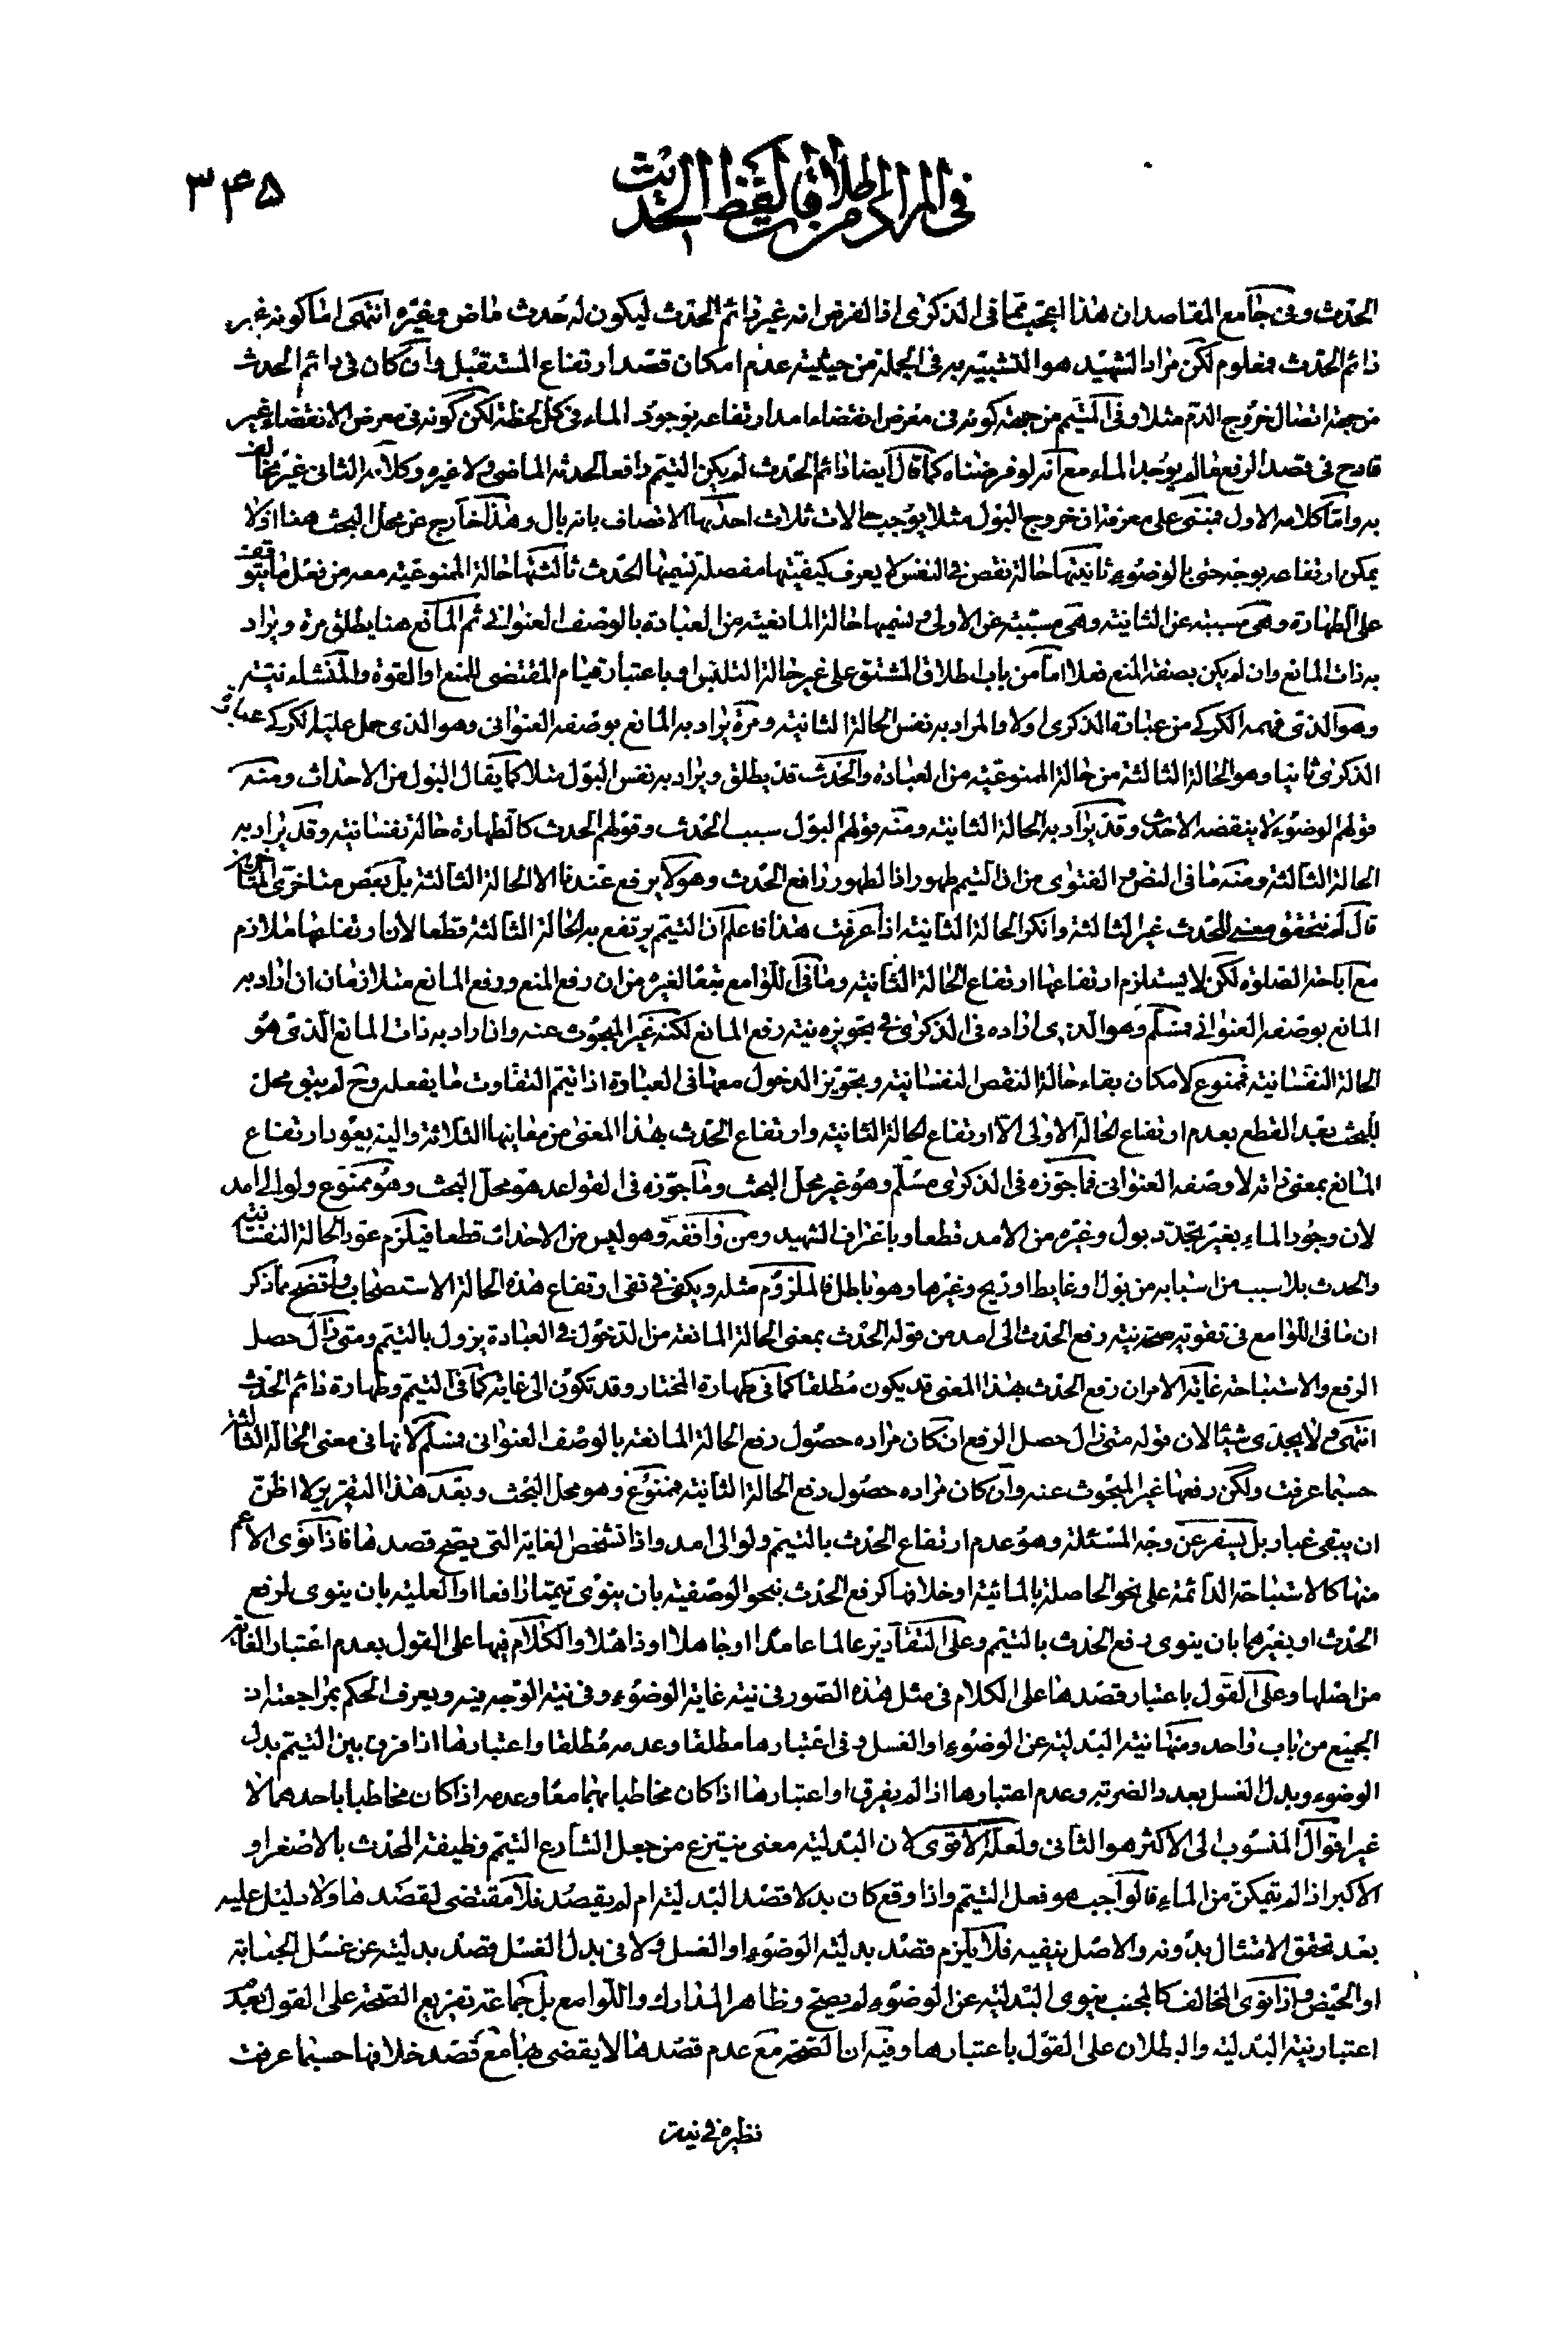 ۳۴۵
في المراد من اطلاقات لفظ الحدث
الحدث وفى جامع المقاصد ان هذا اعجب مما فى الذكرى اذ الفرض انه غير دائم الحدث ليكون له حدث ماض وغيره انتهى اما كونه غير
دائم الحدث فمعلوم لكن مراد الشهيد هو التشبيه به فى الجملة من حيثية عدم امكان قصد ارتفاع المستقبل وان كان فى دائم الحدث
من جهة اتصال خروج الدم مثلا وفى المتيمم من جهة كونه فى معرض انقضاء امد ارتفاعه بوجود الماء فى كل لحظة لكن كونه فى معرض الانقضاء غير
قادح فى قصد الرفع ما لم يوجد الماء مع انه لو فرضناه كما قال ايضا دائم الحدث لم يكن التيمم دافعا لحدثه الماضى ولا غيره وكلامه الثانى غير مخالف
به واما كلامه الاول فمبتنى على معرفة ان خروج البول مثلا يوجب حالات ثلاث احديها الاتصاف بانه بال وهذا خارج عن محل البحث هنا اذ لا
يمكن ارتفاعه بوجه حتى بالوضوء ثانيتها حالة نقص فى النفس لا يعرف كيفيتها مفصلة نسميها الحدث ثالثتها حالة الممنوعية معه من فعل ما يتوقف
على الطهارة وهى مسببة عن الثانية وهى مسببة عن الاولى ونسميها حالة المانعية من العبادة بالوصف العنوانى ثم المانع هنا يطلق مرة ويراد
به ذات المانع وان لم يكن بصفة المنع فعلا اما من باب اطلاق المشتق على غير حالة التلبس او باعتبار قيام المقتضى للمنع او القوة والمنشائية
وهو الذى فهمه الكركى من عبارة الذكرى اولا والمراد به نفس الحالة الثانية ومرة يراد به المانع بوصفه العنوانى وهو الذى حمل عليه الكركى عبارة
الذكرى ثانيا وهو الحالة الثالثة من حالة الممنوعية من العبادة والحدث قد يطلق ويراد به نفس البول مثلا كما يقال البول من الاحداث ومنه
قولهم الوضوء لا ينقضه الا حدث وقد يراد به الحالة الثانية ومنه قولهم البول سبب الحدث وقولهم الحدث كالطهارة حالة نفسانية وقد يراد به
الحالة الثالثة ومنه ما فى النص والفتوى من ان التيمم طهور اذ الطهور رافع الحدث وهو لا يرفع عندنا الا الحالة الثالثة بل بعض متاخرى المتاخرين
قال لم نتحقق معنى للحدث غير الثالثة وانكر الحالة الثانية اذا عرفت هذا فاعلم ان التيمم يرتفع به الحالة الثالثة قطعا لان ارتفاعها ملازم
مع اباحة الصلوة لكن لا يستلزم ارتفاعها ارتفاع الحالة الثانية وما فى اللوامع تبعا لغيره من ان رفع المنع ورفع المانع متلازمان ان اراد به
المانع بوصفه العنوانى فمسلم وهو الذى اراده فى الذكرى فى تجويزه نية رفع المانع لكنه غير المبحوث عنه وان اراد به ذات المانع الذى هو
الحالة النفسانية فممنوع لامكان بقاء حالة النقص النفسانية وتجويز الدخول معها فى العبادة اذا تيمم التفاوت ما يفعله وح لم يبق محل
للبحث بعد القطع بعدم ارتفاع الحالة الاولى الا ارتفاع الحالة الثانية وارتفاع الحدث بهذا المعنى من معاينها الثلاثة واليه يعود ارتفاع
المانع بمعنى ذاته لا وصفه العنوانى فما جوزه فى الذكرى مسلم وهو غير محل البحث وما جوزه فى القواعد هو محل البحث وهو ممنوع ولو الى امد
لان وجود الماء بغير تجدد بول وغيره من الامد قطعا وباعتراف الشهيد ومن وافقه وهو ليس من الاحداث قطعا فيلزم عود الحالة النفسانية
والحدث بلا سبب من اسبابه من بول او غايط او ريح وغيرها وهو باطل فالملزوم مثله ويكفى فى نفى ارتفاع هذه الحالة الاستصحاب واتضح بما ذكر
ان ما فى اللوامع فى تقوية صحة نية رفع الحدث الى امد من قوله الحدث بمعنى الحالة المانعة من الدخول فى العبادة يزول بالتيمم ومتى زال حصل
الرفع والاستباحة غاية الامر ان رفع الحدث بهذا المعنى قد يكون مطلقا كما فى طهارة المختار وقد تكون الى غاية كما فى التيمم وطهارة دائم الحدث
انتهى ولا يجدى شيئا لان قوله متى زال حصل الرفع ان كان مراده حصول رفع الحالة المانعة بالوصف العنوانى فمسلم لانها فى معنى الحالة الثالثة
حسبما عرفت ولكن رفعها غير المبحوث عنه وان كان مراده حصول رفع الحالة الثانية فممنوع وهو محل البحث وبعد هذا التقرير لا اظن
ان يبقى غبار بل يسفر عن وجه المسئلة وهو عدم ارتفاع الحدث بالتيمم ولو الى امد واذا تشخص الغاية التى يصح قصدها فاذا نوى الاعم
منها كالاستباحة الدائمة على نحو الحاصلة بالمائية او خلافها كرفع الحدث بنحو الوصفية بان ينوى تيمما رافعا او العلية بان ينوى لرفع
الحدث او بغيرهما بان ينوى رفع الحدث بالتيمم وعلى التقادير عالما عامدا او جاهلا او ذاهلا والكلام فيها على القول بعدم اعتبار الغاية
من اصلها وعلى القول باعتبار قصدها على الكلام فى مثل هذه الصور فى نية غاية الوضوء وفى نية الوجه فيه ويعرف الحكم بمراجعته اذ
الجميع من باب واحد ومنها نية البدلية عن الوضوء او الغسل وفى اعتبارها مطلقا وعدمه مطلقا واعتبارها اذا فرق بين التيمم بدل
الوضوء وبدل الغسل بعدد الضربة وعدم اعتبارها اذا لم يفرق او اعتبارها اذا كان مخاطبا بهما معا وعدمه اذا كان مخاطبا باحدهما لا
غير اقوال المنسوب الى الاكثر هو الثانى ولعله الاقوى لان البدلية معنى ينتزع من جعل الشارع التيمم وظيفة المحدث بالاصغر او
الاكبر اذا لم يتمكن من الماء فالواجب هو فعل التيمم واذا وقع كان بدلا قصد البدلية ام لم يقصد فلا مقتضى لقصدها ولا دليل عليه
بعد تحقق الامتثال بدونه والاصل ينفيه فلا يلزم قصد بدلية الوضوء او الغسل ولا فى بدل الغسل قصد بدليته عن غسل الجنابة
او الحيض واذا نوى المخالف كالمجنب ينوى البدلية عن الوضوء لم يصح وظاهر المدارك واللوامع بل جماعة تفريع الصحة على القول بعدم
اعتبار نية البدلية والبطلان على القول باعتبارها وفيه ان الصحة مع عدم قصدها لا يقضى بها مع قصد خلافها حسبما عرفت
نظيره فى نية